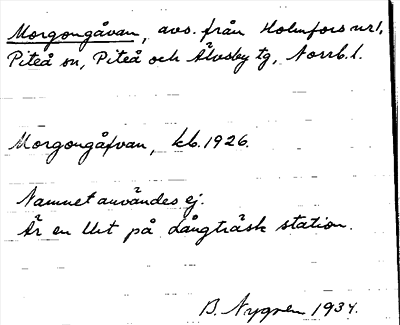 Morgongåvan, avs. från Holmfors nr1,
Piteå sn, Piteå och Älvsby tg, Norrb.l.
Morgongåfvan, kb. 1926.
Namnet användes ej.
Är en del på Långträsk station.
B. Nygren 1934.